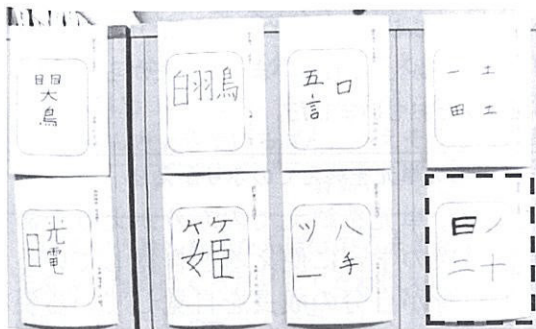 日日
鳥
白羽鳥
五口
言
一土
田土
光
日電
ケケ
女臣
ツ八
一手
日ノ
二十